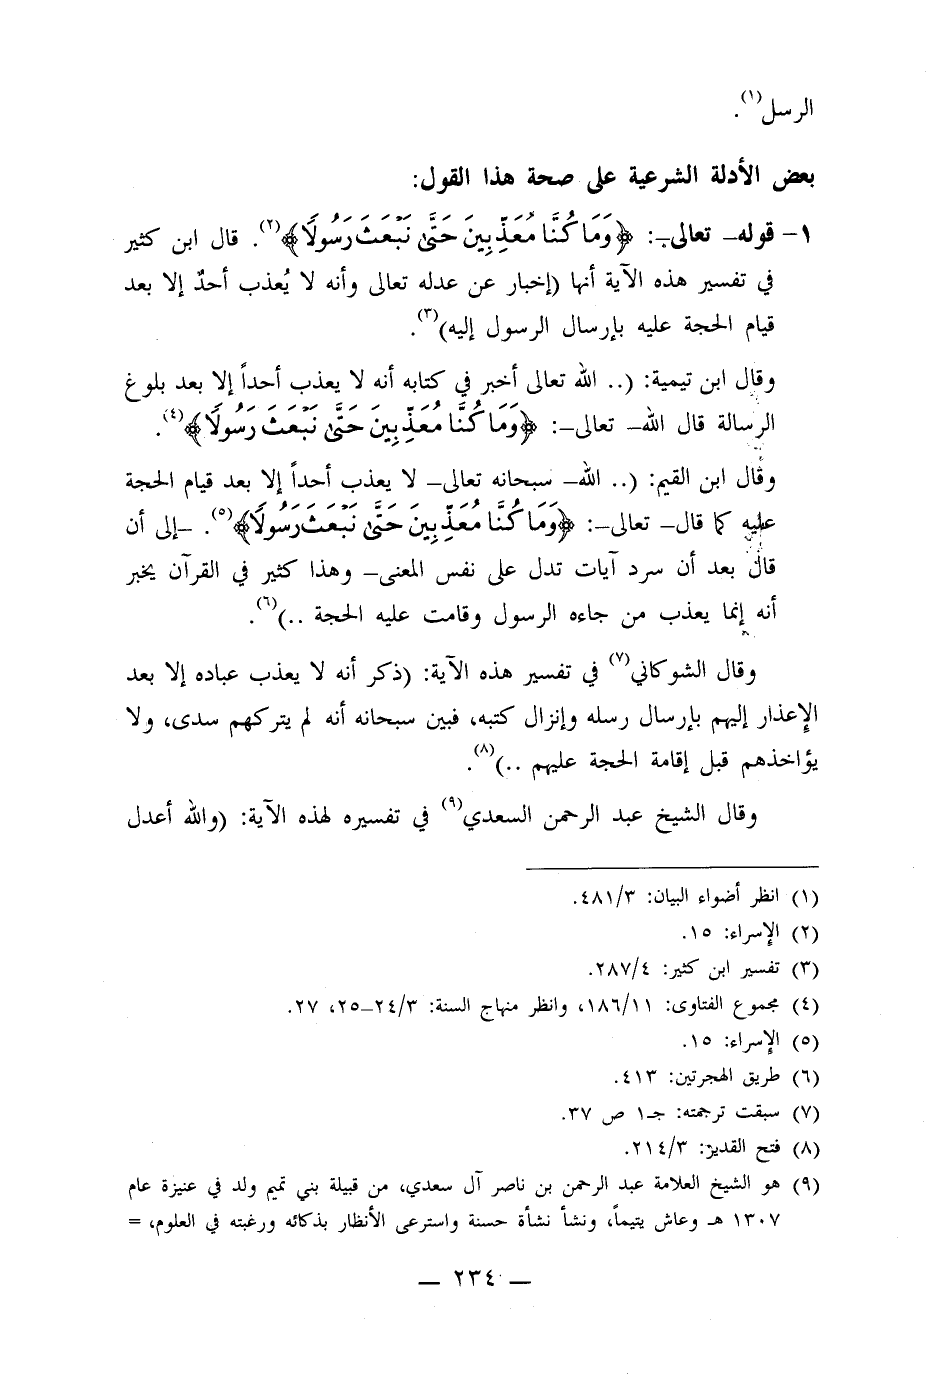 الرسل(١).
بعض الأدلة الشرعية على صحة هذا القول:
١- قوله- تعالى-: ﴿وَمَا كُنَّا مُعَذِّبِينَ حَتَّىٰ نَبْعَثَ رَسُولًا﴾(٢). قال ابن كثير
في تفسير هذه الآية أنها (إخبار عن عدله تعالى وأنه لا يُعذب أحدٌ إلا بعد
قيام الحجة عليه بإرسال الرسول إليه)(٣).
وقال ابن تيمية: (.. الله تعالى أخبر في كتابه أنه لا يعذب أحداً إلا بعد بلوغ
الرسالة قال الله- تعالى-: ﴿وَمَا كُنَّا مُعَذِّبِينَ حَتَّىٰ نَبْعَثَ رَسُولًا﴾(٤).
وقال ابن القيم: (.. الله- سبحانه تعالى- لا يعذب أحداً إلا بعد قيام الحجة
عليه كما قال- تعالى-: ﴿وَمَا كُنَّا مُعَذِّبِينَ حَتَّىٰ نَبْعَثَ رَسُولًا﴾(٥). -إلى أن
قال بعد أن سرد آيات تدل على نفس المعنى- وهذا كثير في القرآن يخبر
أنه إنما يعذب من جاءه الرسول وقامت عليه الحجة ..)(٦).
وقال الشوكاني(٧) في تفسير هذه الآية: (ذكر أنه لا يعذب عباده إلا بعد
الإعذار إليهم بإرسال رسله وإنزال كتبه، فبين سبحانه أنه لم يتركهم سدى، ولا
يؤاخذهم قبل إقامة الحجة عليهم ..)(٨).
وقال الشيخ عبد الرحمن السعدي(٩) في تفسيره لهذه الآية: (والله أعدل
(١) انظر أضواء البيان: ٤٨١/٣.
(٢) الإسراء: ١٥.
(٣) تفسير ابن كثير: ٢٨٧/٤.
(٤) مجموع الفتاوى: ١٨٦/١١، وانظر منهاج السنة: ٢٤/٣-٢٥، ٢٧.
(٥) الإسراء: ١٥.
(٦) طريق الهجرتين: ٤١٣.
(٧) سبقت ترجمته: جـ١ ص ٣٧.
(٨) فتح القدير: ٢١٤/٣.
(٩) هو الشيخ العلامة عبد الرحمن بن ناصر آل سعدي، من قبيلة بني تميم ولد في عنيزة عام
١٣٠٧ هـ وعاش يتيماً، ونشأ نشأة حسنة واسترعى الأنظار بذكائه ورغبته في العلوم، =
— ٢٣٤ —